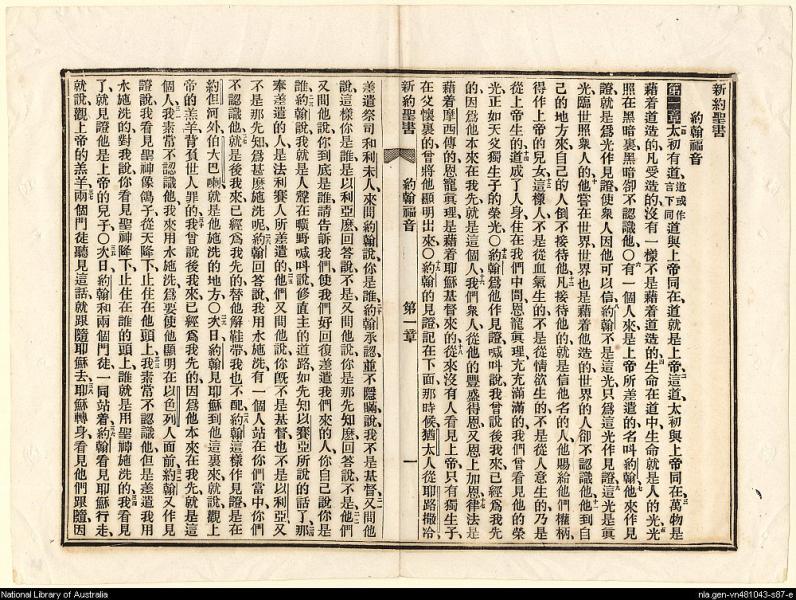 新約聖書
約翰福音
第一章太初有道道或作言下同道與上帝同在道就是上帝這道太初與上帝同在萬物是
藉着道造的凡受造的沒有一樣不是藉着道造的生命在道中生命就是人的光光
照在黑暗裏黑暗卻不認識他〇有一個人來是上帝所差遣的名叫約翰他來作見
證就是為光作見證使衆人因他可以信約翰不是這光只為這光作見證這光是眞
光臨世照衆人的他嘗在世界世界也是藉着他造的世界的人卻不認識他他到自
己的地方來自己的人倒不接待他凡接待他的就是信他名的人他賜給他們權柄
得作上帝的兒女這樣人不是從血氣生的不是從情欲生的不是從人意生的乃是
從上帝生的道成了人身住在我們中間恩寵眞理充充滿滿的我們曾看見他的榮
光正如天父獨生子的榮光〇約翰為他作見證喊叫說我曾說後我來已經為我先
的因為他本來在我先就是這個人我們衆人從他的豐盛得恩又恩上加恩律法是
藉着摩西傳的恩寵眞理是藉着耶穌基督來的從來沒有人看見上帝只有獨生子
在父懷裏的曾將他顯明出來〇約翰的見證記在下面那時候猶太人從耶路撒冷
新約聖書
約翰福音
第一章
一
差遣祭司和利未人來問約翰說你是誰約翰承認並不隱瞞說我不是基督又問他
說這樣你是誰是以利亞麼回答說不是又問他說你是那先知麼回答說不是他們
又問他說你到底是誰請告訴我們使我們好回復差遣我們來的人你自己說你是
誰約翰說我就是人聲在曠野喊叫說修直主的道路如先知以賽亞所說的話了那
奉差遣的人是法利賽人所差遣的他們又問他說你旣不是基督也不是以利亞又
不是那先知為甚麼施洗呢約翰回答說我用水施洗有一個人站在你們當中你們
不認識他就是後我來已經為我先的替他解鞋帶我也不配約翰這樣作見證是在
約但河外伯大巴喇就是他施洗的地方〇次日約翰見耶穌到他這裏來就說觀上
帝的羔羊背負世人罪的我曾說後我來已經為我先的因為他本來在我先就是這
個人我素常不認識他我來用水施洗為要使他顯明在以色列人面前約翰又作見
證說我看見聖神像鴿子從天降下止住在他頭上我素常不認識他但是差遣我用
水施洗的對我說你看見聖神降下止住在誰的頭上誰就是用聖神施洗的我看見
了就見證他是上帝的兒子〇次日約翰和兩個門徒一同站着約翰看見耶穌行走
就說觀上帝的羔羊兩個門徒聽見這話就跟隨耶穌去耶穌轉身看見他們跟隨因
National Library of Australia
nla.gen-vn481043-s87-e